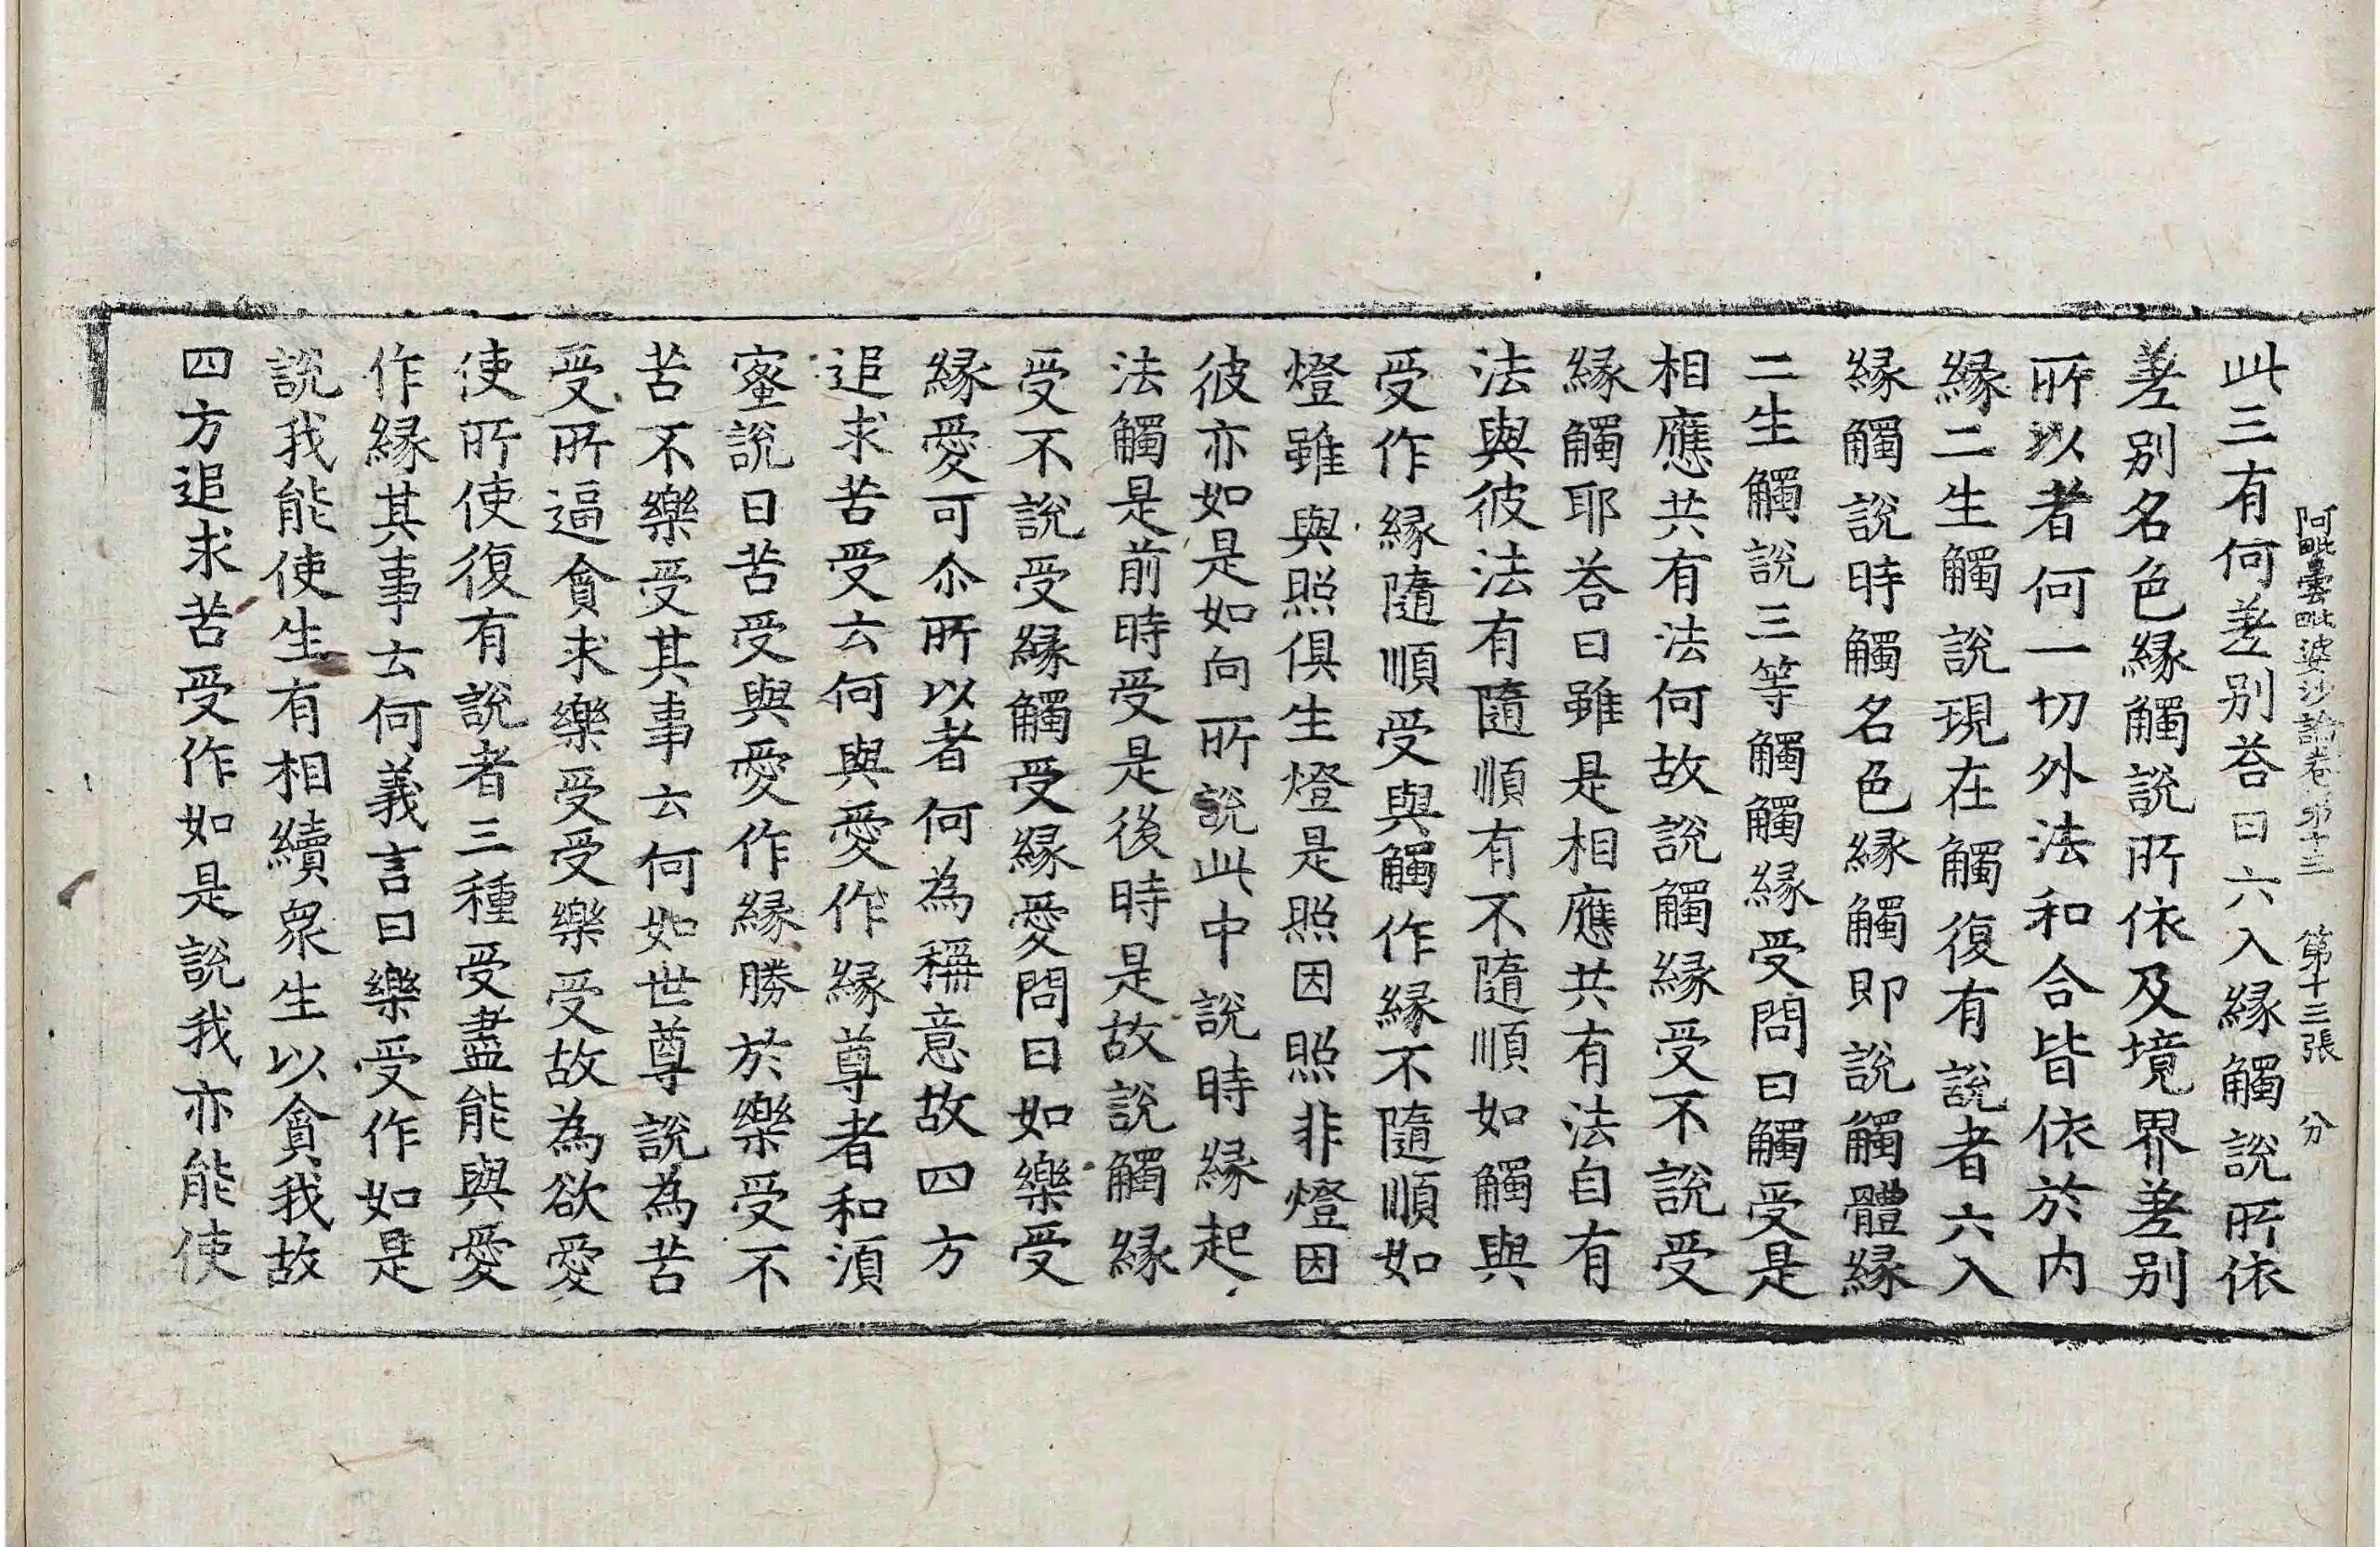 阿毗曇毗婆沙論卷第十三 第十三張 分
此三有何差别荅曰六入縁觸說所依
差别名色縁觸說所依及境界差别
所以者何一切外法和合皆依於内
縁二生觸說現在觸復有說者六入
縁觸說時觸名色縁觸即說觸體縁
二生觸說三等觸觸縁受問曰觸受是
相應共有法何故說觸縁受不說受
縁觸耶荅曰雖是相應共有法自有
法與彼法有隨順有不隨順如觸與
受作縁隨順受與觸作縁不隨順如
燈雖與照俱生燈是照因照非燈因
彼亦如是如向所說此中說時縁起
法觸是前時受是後時是故說觸縁
受不說受縁觸受縁愛問曰如樂受
縁愛可尒所以者何為稱意故四方
追求苦受云何與愛作縁尊者和湏
蜜說曰苦受與愛作縁勝於樂受不
苦不樂受其事云何如世尊說為苦
受所逼貪求樂受受樂受故為欲愛
使所使復有說者三種受盡能與愛
作縁其事云何義言曰樂受作如是
說我能使生有相續衆生以貪我故
四方追求苦受作如是說我亦能使